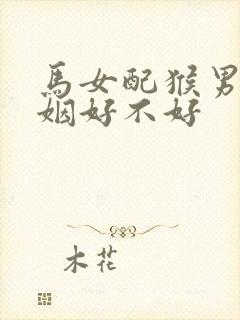 馬女配猴男
姻好不好
木花